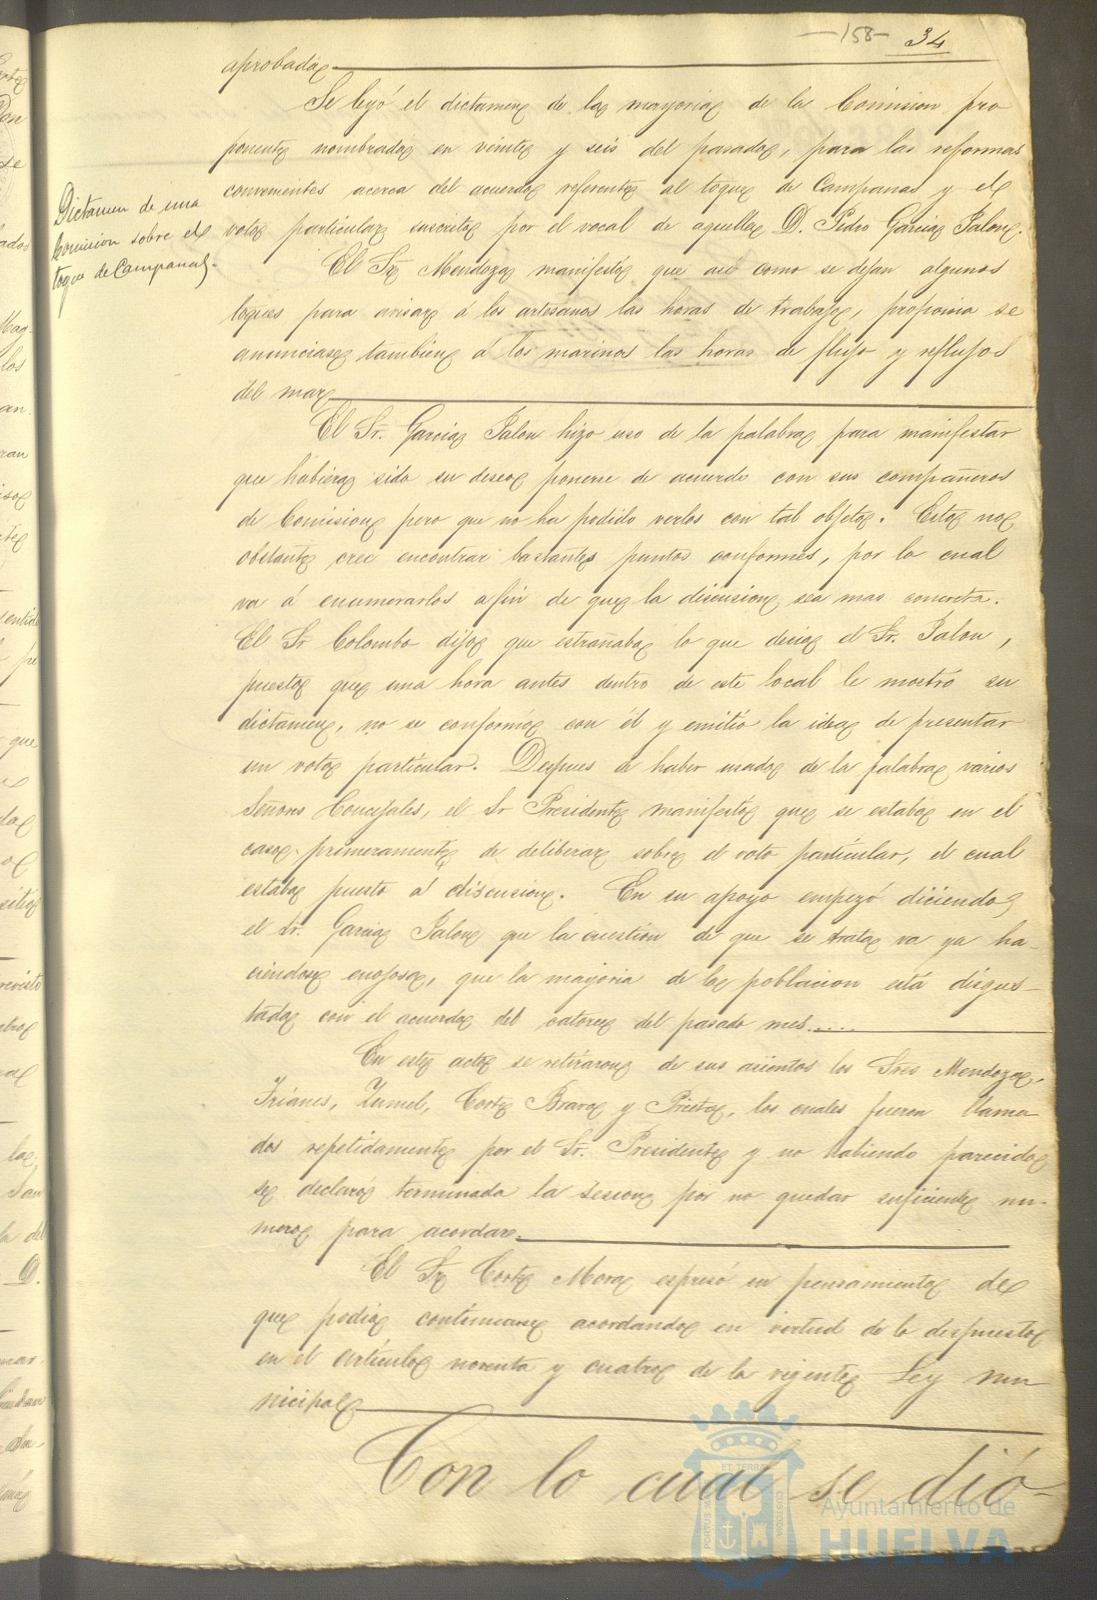 -158- 34
aprobada
Se leyó el dictamen de la mayoria de la Comision pro
ponente nombrada en veinte y seis del pasado, para las reformas
convenientes acerca del acuerdo referente al toque de Campanas y el
voto particular suscrito por el vocal de aquella D. Pedro Garcia Jalon.
Dictamen de una
Comision sobre el
toque de Campanas.
El Sr. Mendoza manifestó que asi como se dejan algunos
toques para avisar á los artesanos las horas de trabajo, proponia se
anunciase tambien á los marinos las horas de flujo y reflujos
del mar
El Sr. Garcia Jalon hizo uso de la palabra para manifestar
que hubiera sido su deseo ponerse de acuerdo con sus compañeros
de Comision pero que no ha podido verlos con tal objeto. Esto no
obstante cree encontrar bastantes puntos conformes, por lo cual
va á enumerarlos a fin de que la discusion sea mas concreta.
El Sr Colombo dijo que estrañaba lo que decia el Sr. Jalon,
puesto que una hora antes dentro de este local le mostró su
dictamen, no se conformó con él y emitió la idea de presentar
un voto particular. Despues de haber usado de la palabra varios
Señores Concejales, el Sr Presidente manifestó que se estaba en el
caso primeramente de deliberar sobre el voto particular, el cual
estaba puesto á discusion. En su apoyo empezó diciendo
el Sr. Garcia Jalon que la cuestion de que se trata va ya ha-
ciendose enojosa, que la mayoria de la poblacion está disgus-
tada con el acuerdo del catorce del pasado mes.....
En este acto se retiraron de sus asientos los Sres Mendoza,
Trianes, Zumel, Corte Brava y Prieto, los cuales fueron llama
dos repetidamente por el Sr. Presidente y no habiendo parecido
se declaró terminada la Sesion por no quedar suficiente nu-
mero para acordar.
El Sr Corte Mora espresó su pensamiento de
que podia continuarse acordando en virtud de lo dispuesto
en el articulo noventa y cuatro de la vigente Ley mu
nicipal
Con lo cual se dió
Ayuntamiento de
HUELVA